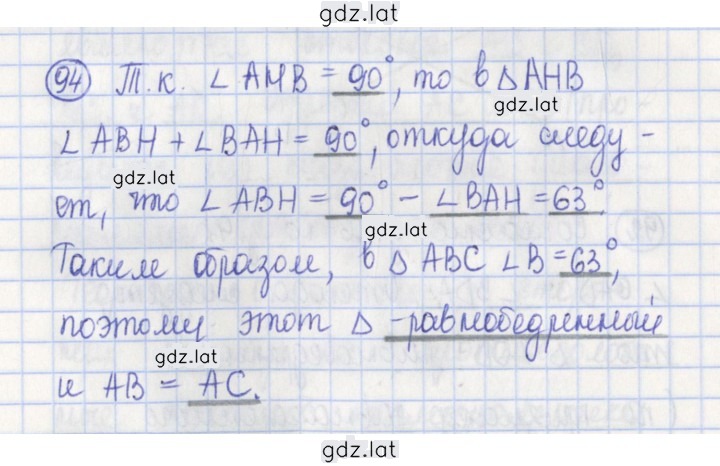 gdz.lat
94 Т.к. ∠AHB = 90°, то в △AHB
gdz.lat
∠ABH + ∠BAH = 90°, откуда следу-
gdz.lat
ет, что ∠ABH = 90° - ∠BAH = 63°.
gdz.lat
Таким образом, в △ABC ∠B = 63°,
поэтому этот △ -равнобедренный
gdz.lat
и AB = AC.
gdz.lat